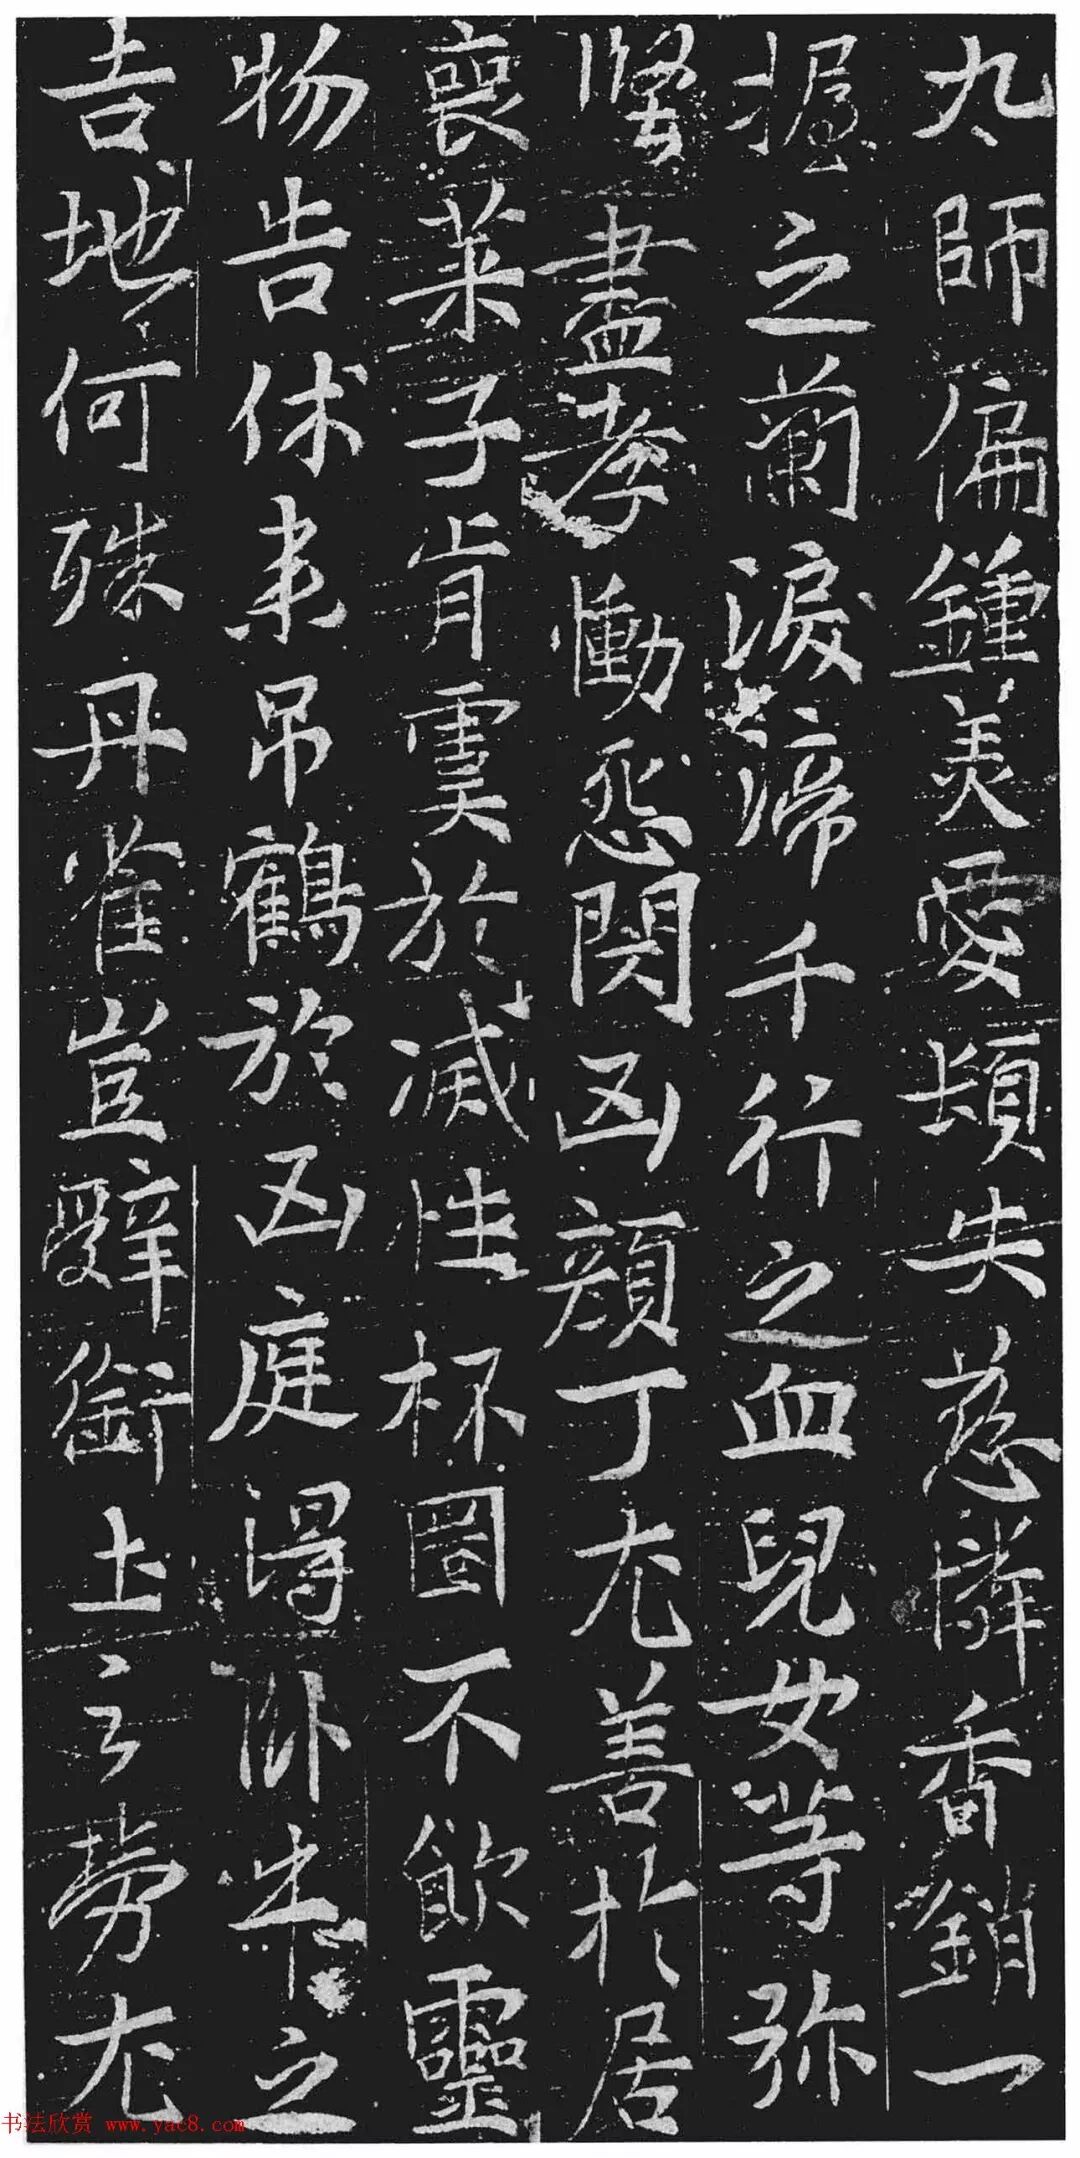 九師偏鍾美愛頃失慈憐香銷一
握之蘭淚滯千行之血兒女等弥
堅盡孝慟怨閔凶顏丁尤善於居
喪萊子肯虞於滅性杯圈不飲靈
物告休来吊鶴於凶庭得卧牛之
吉地何殊丹雀豈辭銜土之勞尤
书法欣赏 www.yac8.com